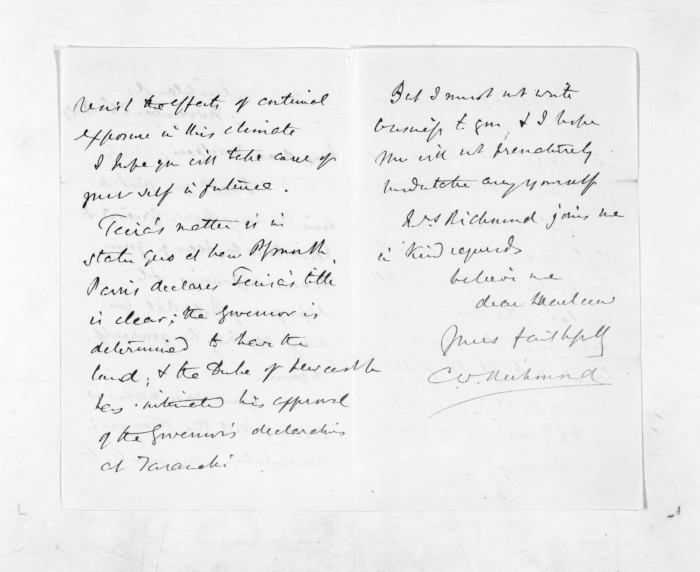 resist the effects of continual
exposure in this climate
I hope you will take care of
yourself in future.
Teira's matter is in
statu quo at New Plymouth.
Parris declares Teira's title
is clear; the Governor is
determined to have the
land; & the Duke of Newcastle
has intimated his approval
of the Governor's declaration
at Taranaki
But I must not write
business to you, & I hope
you will not prematurely
undertake any yourself
Mrs Richmond joins me
in kind regards
believe me
dear McLean
Yours faithfully
C.W. Richmond